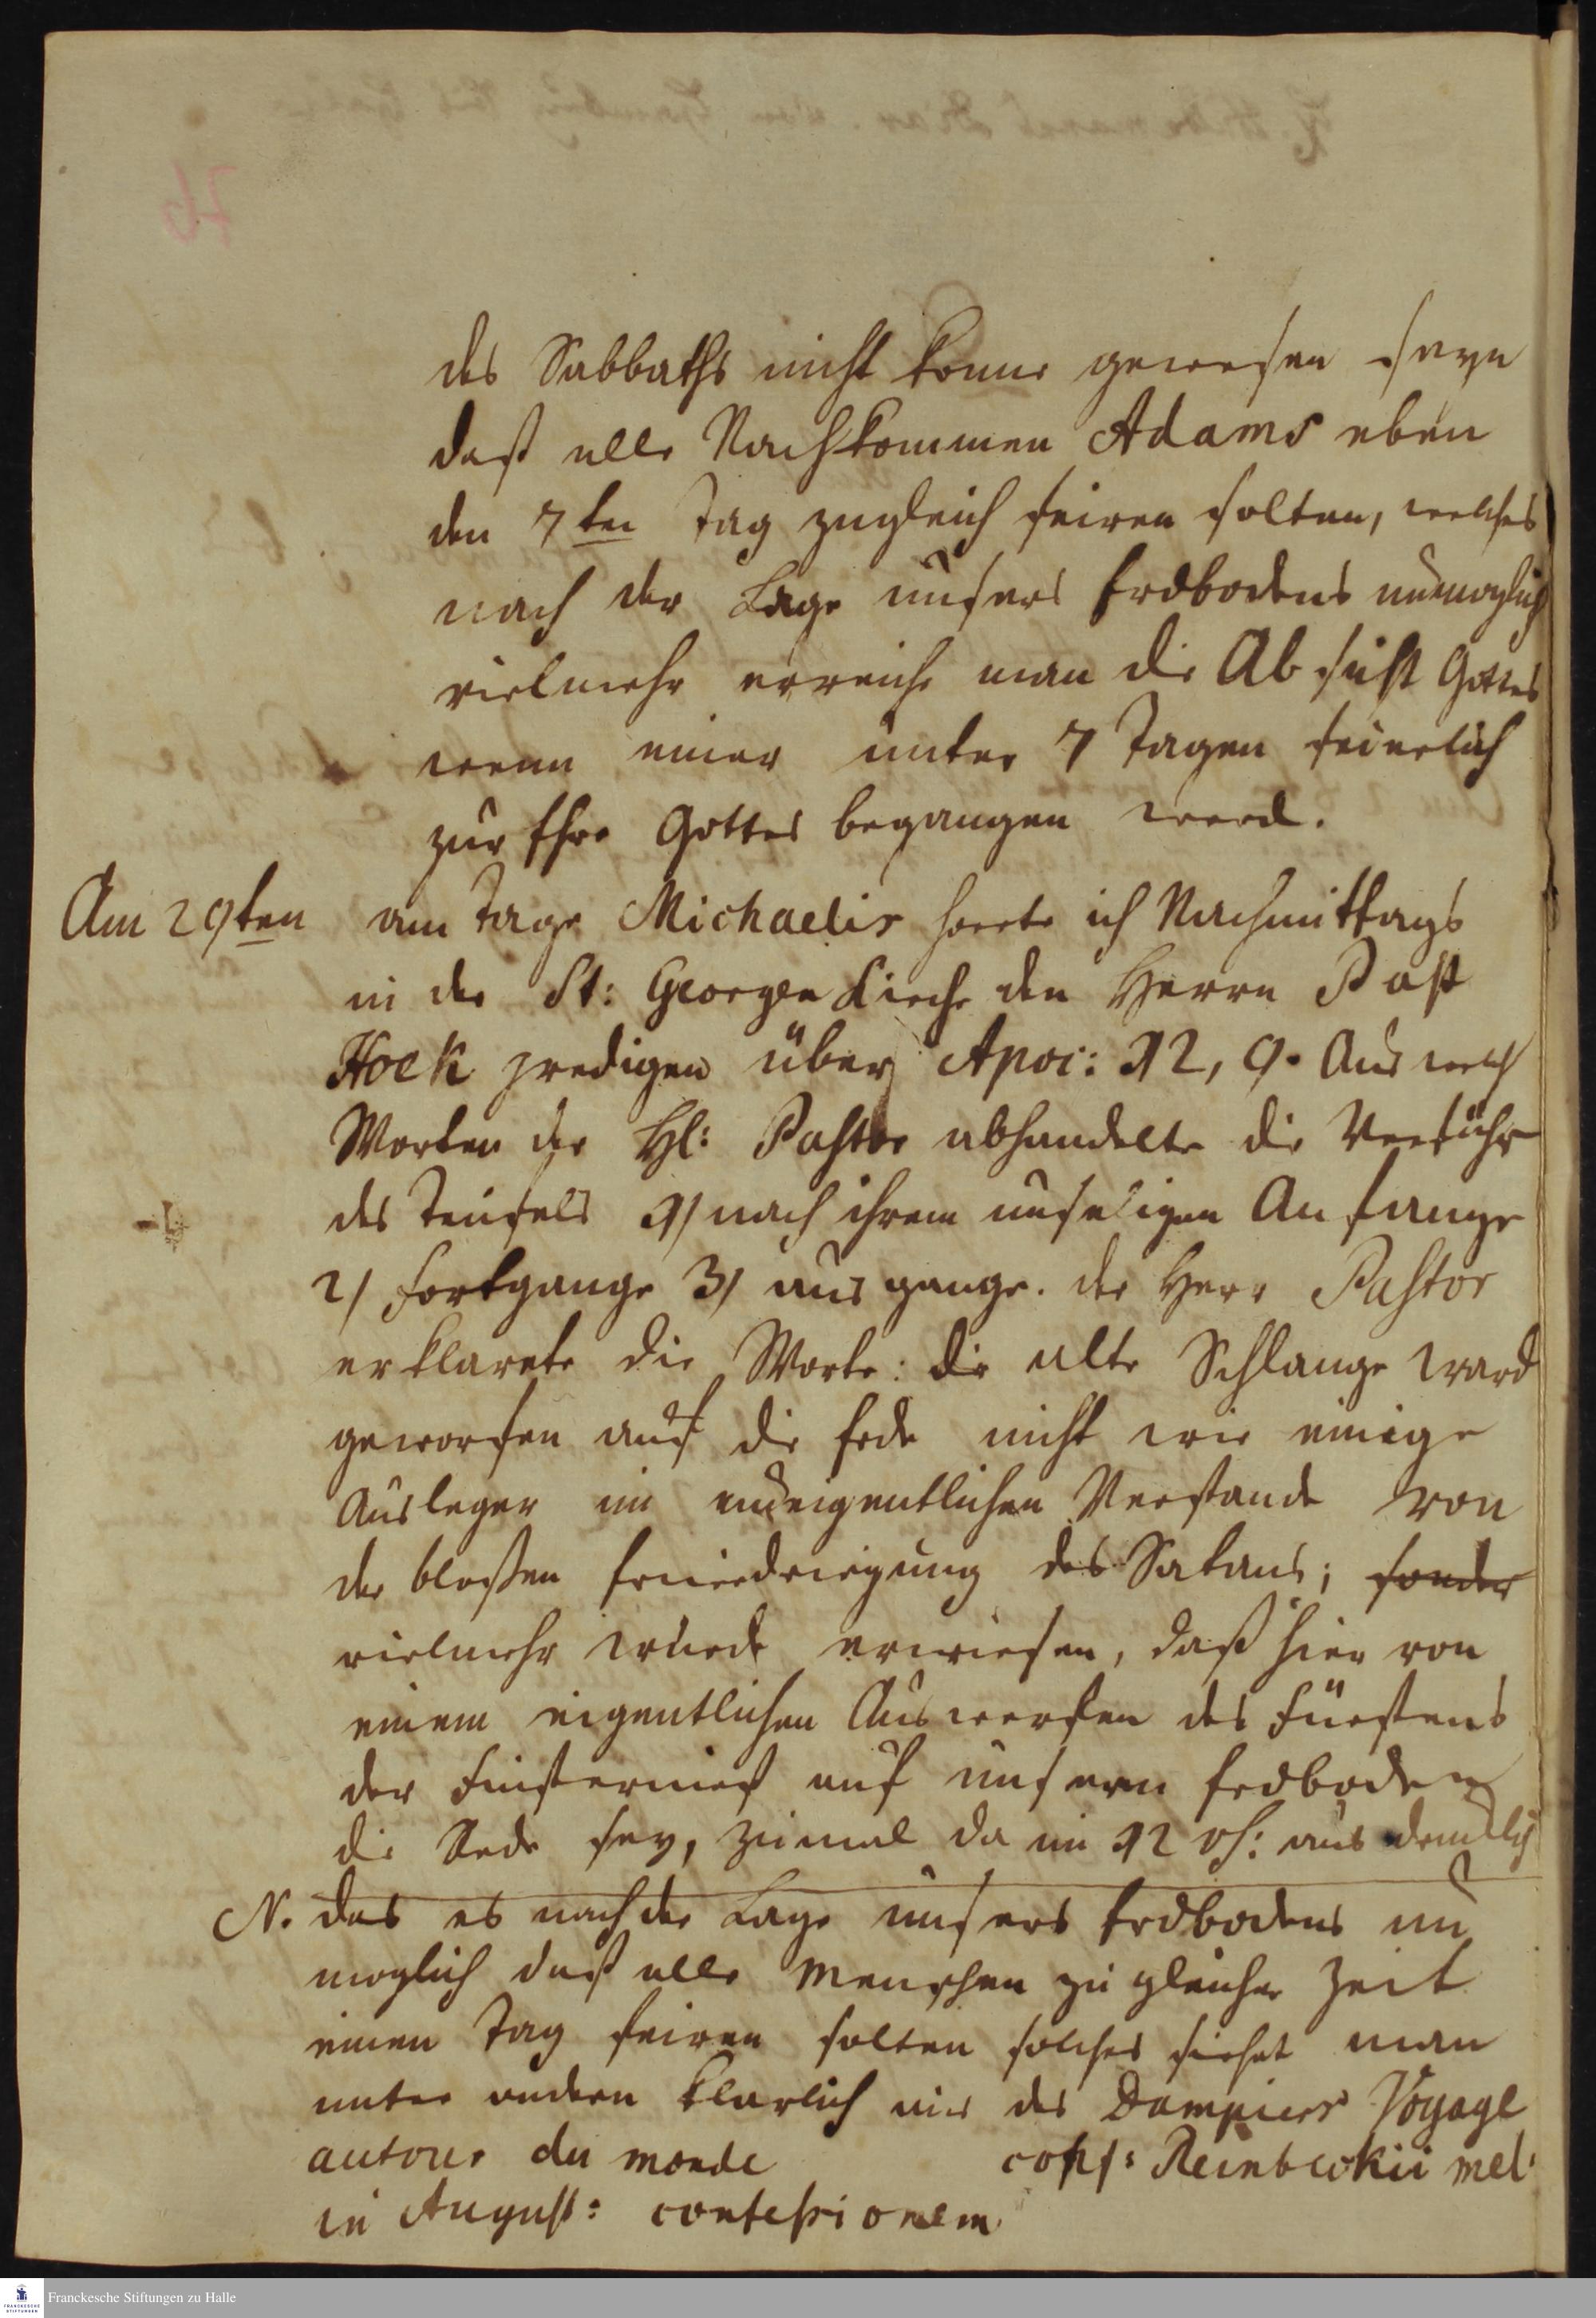 des Sabbaths nicht könne gewesen seyn
daß alle Nachkommen Adams eben
den 7ten Tag zugleich feiren solten, welches
nach der Lage unsers Erdbodens unmoglich
vielmehr erreiche man die Absicht Gottes
wenn einer unter 7 Tagen feierlich
zur Ehre Gottes begangen werd.
Am 29ten am Tage Michaelis hoerte ich Nachmittags
in der St: Georgen Kirche den Herrn Past
Hoek predigen über Apoc: 12, 9. Aus welch
Worten der H: Pastor abhandelte die Verführ
des Teufels 1) nach ihrem unseligen Anfange
2) Fortgange 3) ausgange. der Herr Pastor
erklarete die Worte: die alte Schlange ward
geworfen auf die Erde nicht wie einige
Ausleger im uneigentlichen Verstande von
der bloßen Erniedrigung des Satans; sonder
vielmehr wurde erwiesen, daß hier von
einem eigentlichen Auswerfen des Fürstens
der Finsterniß auf unsern Erdboden
die Rede sey, zumal da im 12 vs: aus drucklich
N. das es nach der Lage unsers Erdbodens un
moglich daß alle Menschen zu gleicher Zeit
einen Tag feiren solten solches siehet man
unter andern klarlich aus des Dampiers Voyage
autour du monde conf: Reinbeckii med
in August: confessionem
Franckesche Stiftungen zu Halle